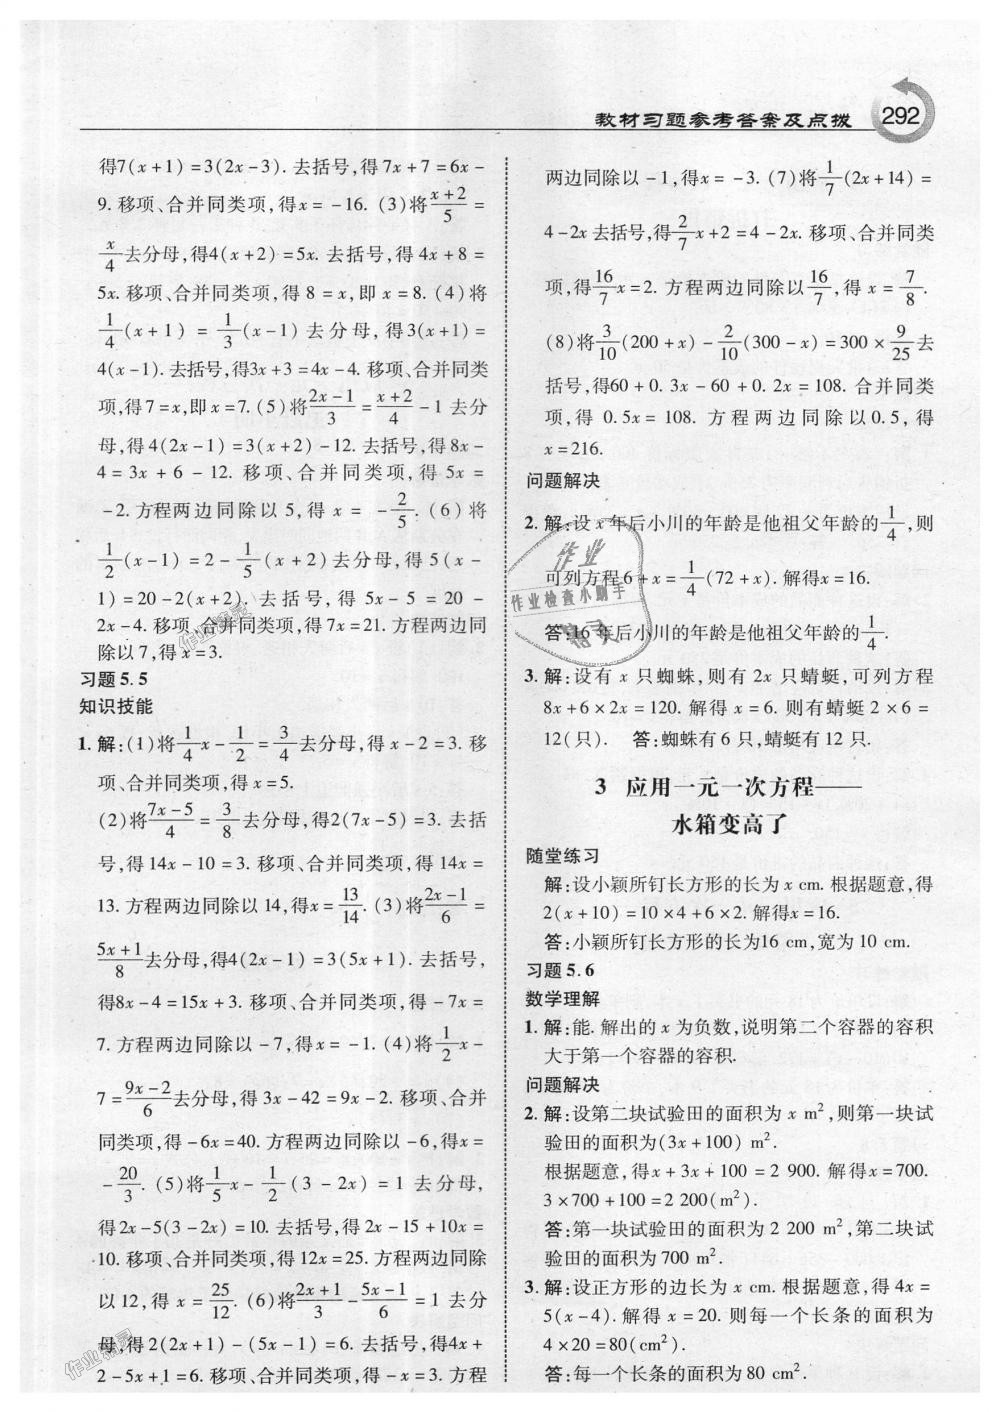 教材习题参考答案及点拨
292
得7(x+1)=3(2x-3). 去括号,得 7x+7=6x-
9. 移项、合并同类项,得x=-16. (3)将(x+2)/5=
x/4去分母,得4(x+2)=5x. 去括号,得 4x+8=
5x. 移项、合并同类项,得 8=x,即 x=8. (4)将
1/4(x+1)=1/3(x-1)去分母,得3(x+1)=
4(x-1). 去括号,得3x+3=4x-4. 移项、合并同类
项,得7=x,即x=7. (5)将(2x-1)/3=(x+2)/4-1 去分
母,得 4(2x-1)=3(x+2)-12. 去括号,得 8x-
4=3x+6-12. 移项、合并同类项,得 5x=
-2. 方程两边同除以 5,得 x=-2/5. (6)将
1/2(x-1)=2-1/5(x+2)去分母,得 5(x-
1)=20-2(x+2). 去括号,得 5x-5=20-
2x-4. 移项、合并同类项,得7x=21. 方程两边同
除以7,得x=3.
习题5.5
知识技能
1. 解:(1)将1/4x-1/2=3/4去分母,得 x-2=3. 移
项、合并同类项,得x=5.
(2)将(7x-5)/4=3/8去分母,得2(7x-5)=3. 去括
号,得 14x-10=3. 移项、合并同类项,得 14x=
13. 方程两边同除以14,得x=13/14. (3)将(2x-1)/6=
(5x+1)/8去分母,得4(2x-1)=3(5x+1). 去括号,
得8x-4=15x+3. 移项、合并同类项,得-7x=
7. 方程两边同除以-7,得x=-1. (4)将1/2x-
7=(9x-2)/6去分母,得 3x-42=9x-2. 移项、合并
同类项,得-6x=40. 方程两边同除以-6,得x=
-20/3. (5)将1/5x-1/2(3-2x)=1 去分母,
得2x-5(3-2x)=10. 去括号,得2x-15+10x=
10. 移项、合并同类项,得 12x=25. 方程两边同除
以12,得 x=25/12. (6)将(2x+1)/3-(5x-1)/6=1 去分
母,得2(2x+1)-(5x-1)=6. 去括号,得4x+
2-5x+1=6. 移项、合并同类项,得-x=3. 方程
两边同除以-1,得x=-3. (7)将1/7(2x+14)=
4-2x 去括号,得2/7x+2=4-2x. 移项、合并同类
项,得16/7x=2. 方程两边同除以16/7,得 x=7/8.
(8)将3/10(200+x)-2/10(300-x)=300×9/25去
括号,得60+0.3x-60+0.2x=108. 合并同类
项,得 0.5x=108. 方程两边同除以0.5,得
x=216.
问题解决
2. 解:设x年后小川的年龄是他祖父年龄的1/4,则
可列方程6+x=1/4(72+x). 解得x=16.
答:16年后小川的年龄是他祖父年龄的1/4.
3. 解:设有 x 只蜘蛛,则有 2x 只蜻蜓,可列方程
8x+6×2x=120. 解得 x=6. 则有蜻蜓 2×6=
12(只). 答:蜘蛛有 6 只,蜻蜓有 12 只.
3 应用一元一次方程——
水箱变高了
随堂练习
解:设小颖所钉长方形的长为x cm. 根据题意,得
2(x+10)=10×4+6×2. 解得x=16.
答:小颖所钉长方形的长为16 cm,宽为 10 cm.
习题5.6
数学理解
1. 解:能. 解出的 x 为负数,说明第二个容器的容积
大于第一个容器的容积.
问题解决
2. 解:设第二块试验田的面积为 x m²,则第一块试
验田的面积为(3x+100) m².
根据题意,得x+3x+100=2 900. 解得x=700.
3×700+100=2 200(m²).
答:第一块试验田的面积为2 200 m²,第二块试
验田的面积为700 m².
3. 解:设正方形的边长为 x cm. 根据题意,得 4x=
5(x-4). 解得 x=20. 则每一个长条的面积为
4×20=80(cm²).
答:每一个长条的面积为80 cm².
作业
作业检查小助手
精灵
作业精灵
作业精灵